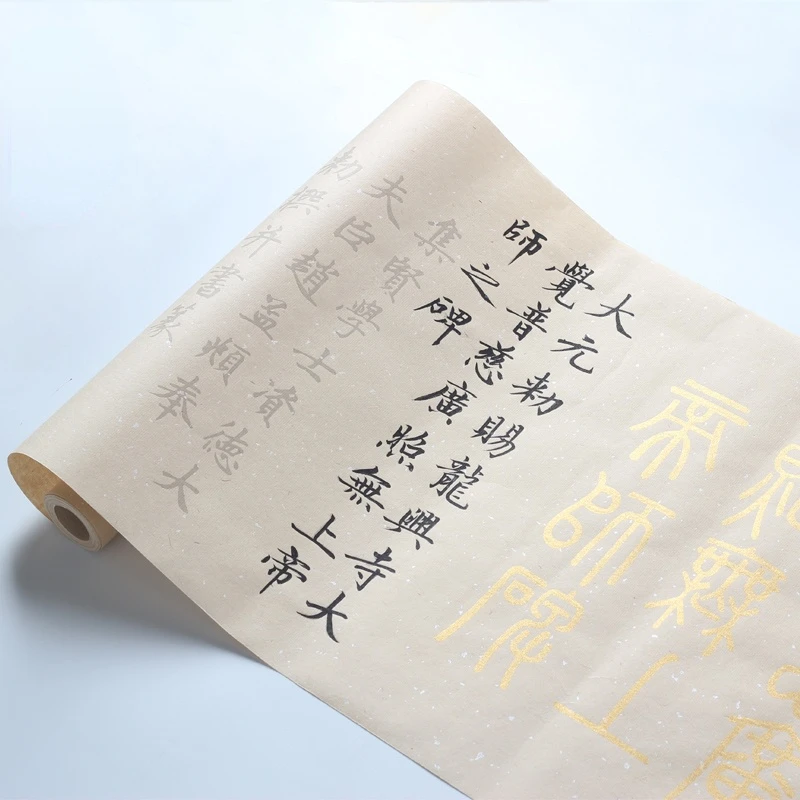 廣
照無上
帝師碑
大元勅賜龍興寺大
覺普慈廣照無上帝
師之碑
集賢學士資德大
夫臣趙孟頫奉
勅撰并書篆